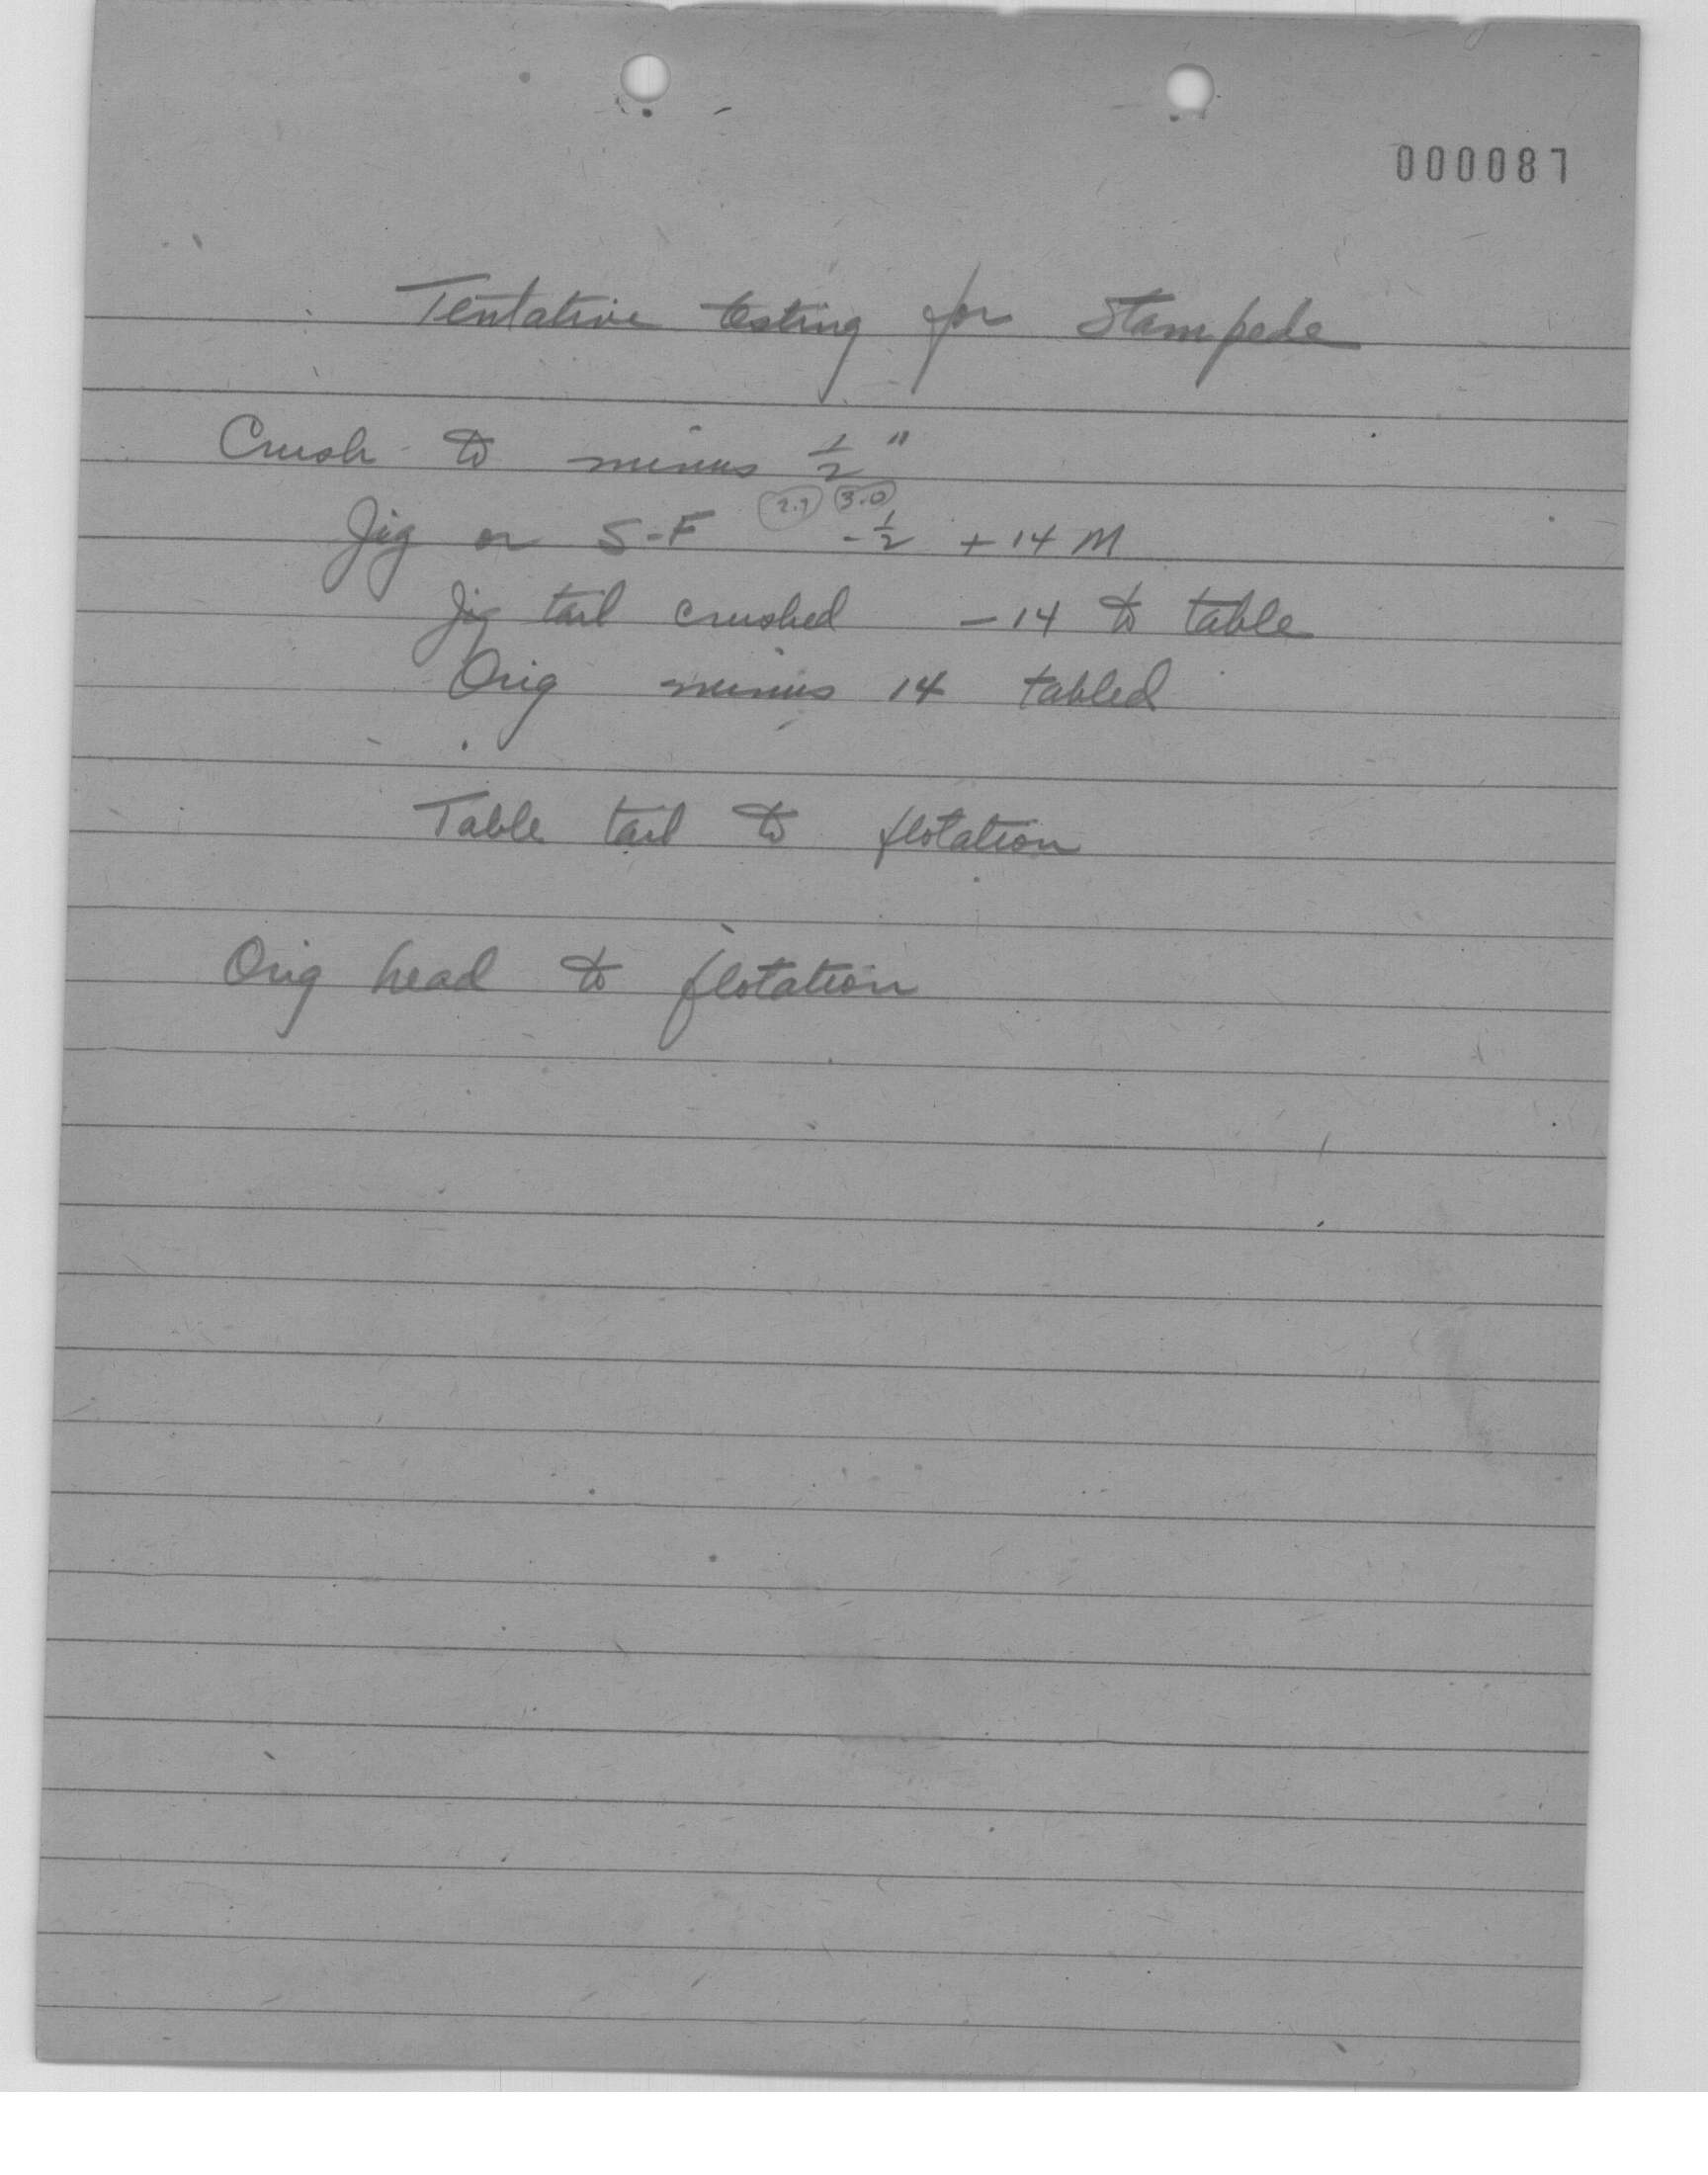 000087
Tentative testing for Stampede
Crush to minus 1/2"
2.7 3.0
Jig or S-F -1/2 +14 M
Jig tail crushed -14 to table
Orig minus 14 tabled
Table tail to flotation
Orig head to flotation